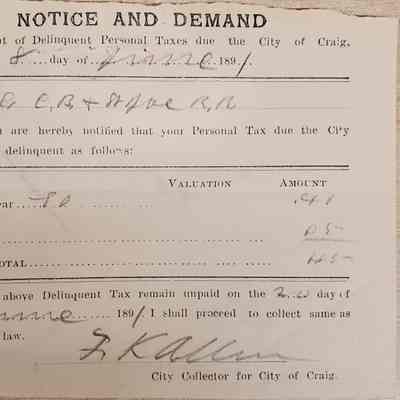 NOTICE AND DEMAND
t of Delinquent Personal Taxes due the City of Craig,
8 day of June 1891.
C.B. & St Joe R.R
are hereby notified that your Personal Tax due the City
delinquent as follows:
VALUATION AMOUNT
ar.....
.41
05
OTAL 
above Delinquent Tax remain unpaid on the 20 day of
June 1891 I shall proceed to collect same as
law.
F K Allen
City Collector for City of Craig.